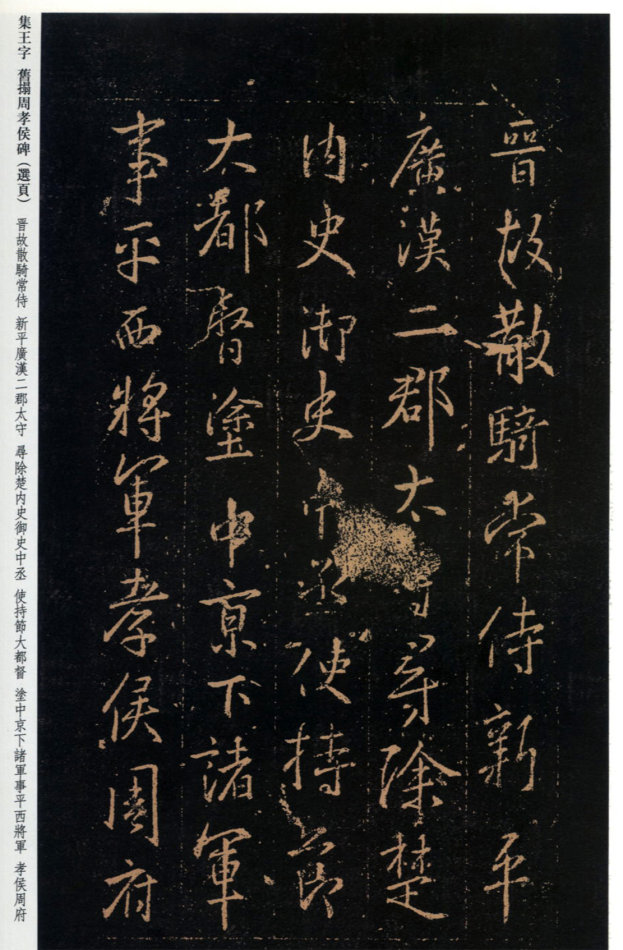 晋故散騎常侍新平
廣漢二郡太守尋除楚
内史御史中丞使持節
大都督塗中京下諸軍
事平西將軍孝侯周府
集王字 舊搨周孝侯碑（選頁） 晋故散騎常侍 新平廣漢二郡太守 尋除楚内史御史中丞 使持節大都督 塗中京下諸軍事平西將軍 孝侯周府